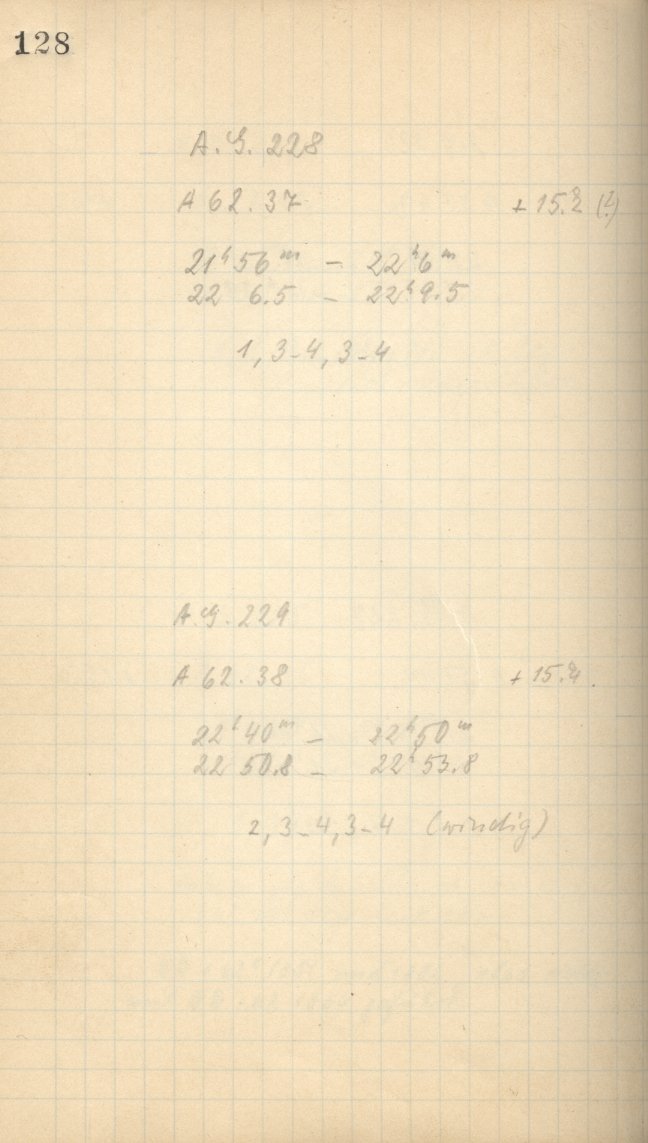 128
A. G. 228
A 62.37 + 15.2 (?)
21ʰ 56ᵐ – 22ʰ 6ᵐ
22 6.5 – 22ʰ 9.5
1, 3–4, 3–4
A. G. 229
A 62.38 + 15.4
22ʰ 40ᵐ – 22ʰ 50ᵐ
22 50.8 – 22ʰ 53.8
2, 3–4, 3–4 (windig)